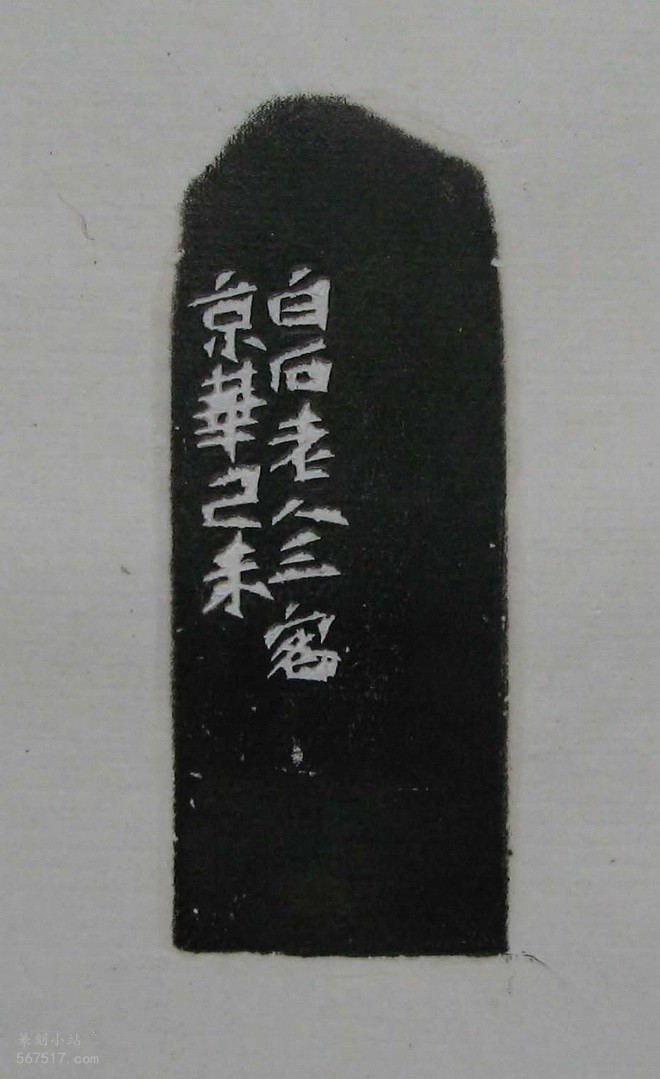 白石老人三寓
京華己未
篆刻小站
567517.com